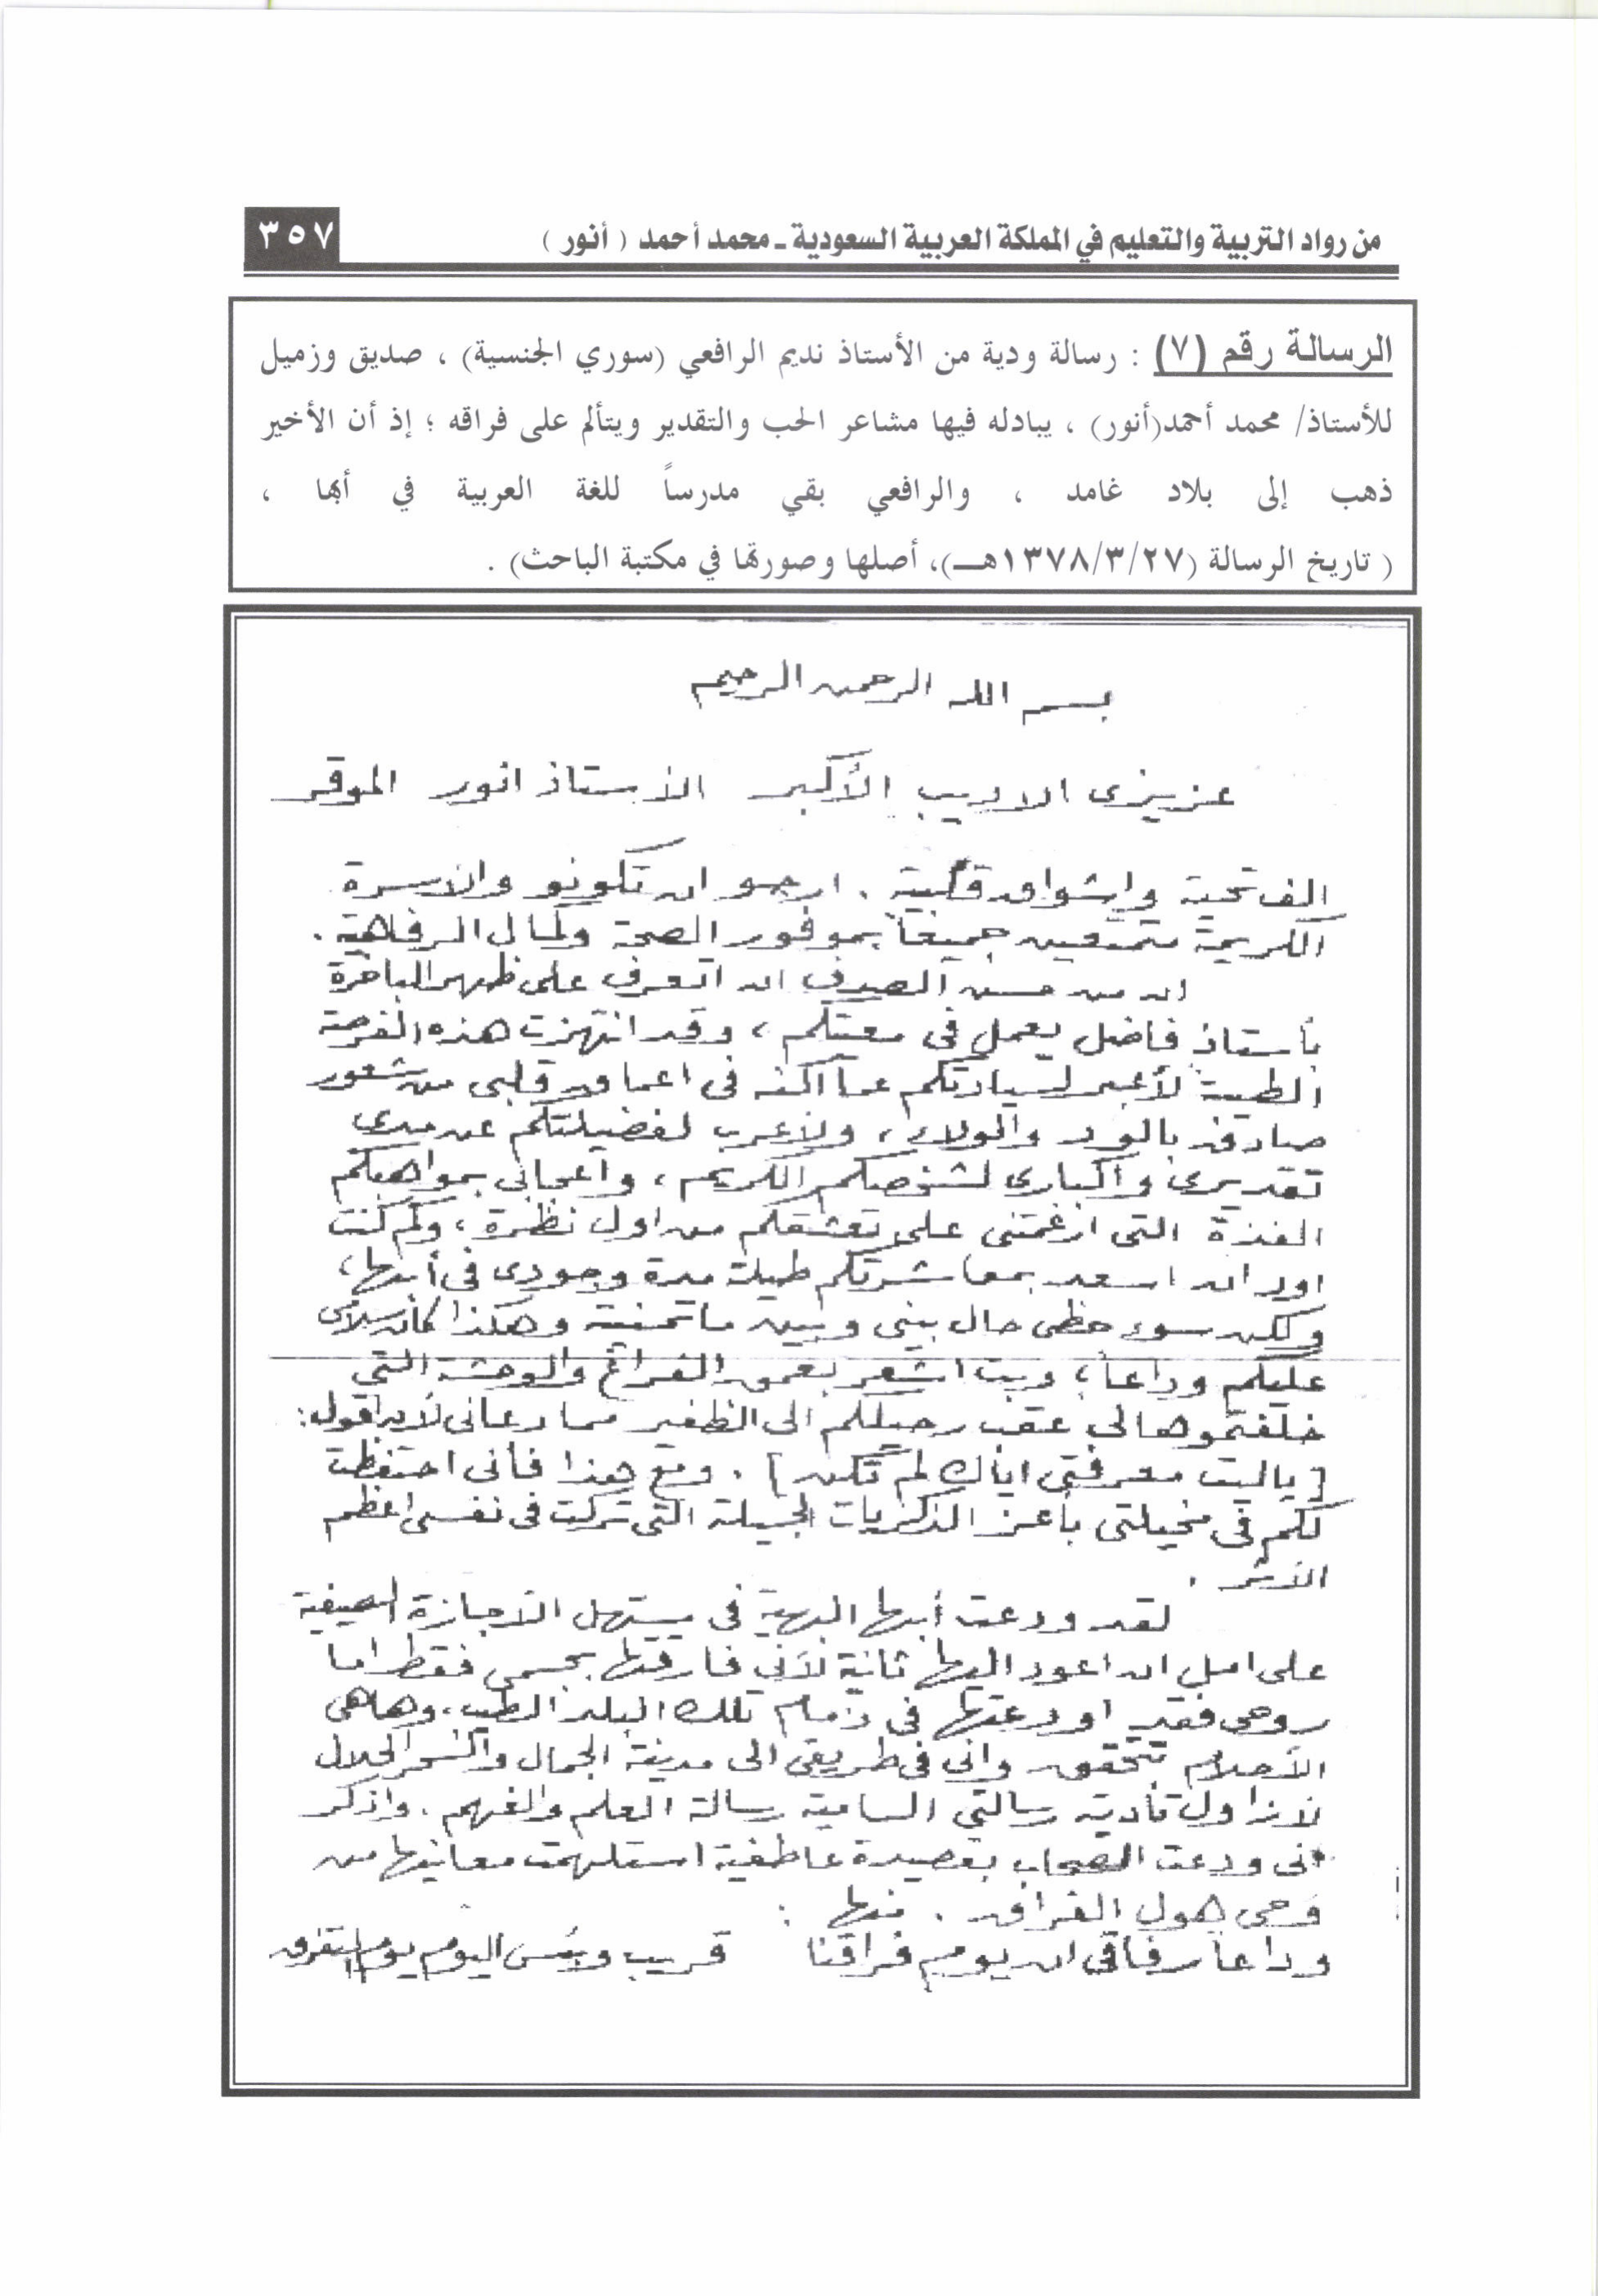 من رواد التربية والتعليم في المملكة العربية السعودية ـ محمد أحمد ( أنور )
٣٥٧
الرسالة رقم (٧) : رسالة ودية من الأستاذ نديم الرافعي (سوري الجنسية) ، صديق وزميل
للأستاذ/ محمد أحمد(أنور) ، يبادله فيها مشاعر الحب والتقدير ويتألم على فراقه ؛ إذ أن الأخير
ذهب إلى بلاد غامد ، والرافعي بقي مدرساً للغة العربية في أبها ،
( تاريخ الرسالة (١٣٧٨/٣/٢٧هـ)، أصلها وصورتها في مكتبة الباحث) .
بسم الله الرحمن الرحيم
عزيزى الاديب الأكبر الأستاذ انور الموقر
الف تحية واشواق قلبية . ارجو ان تكونو والأسرة
الكريمة متمتعين جميعاً بموفور الصحة وكمال الرفاهية .
ان من حسن الصدف ان اتعرف على ظهر الباخرة
بأستاذ فاضل يعمل فى معيتكم ، وقد انتهزت هذه الفرصة
الطيبة لأعبر لسيادتكم عما اكنه فى اعماق قلبى من شعور
صادق بالود والولاء ، ولأعرب لفضيلتكم عن مدى
تقديرى واكبارى لشخصكم الكريم ، واعجابى بمواهبكم
الفذة التى ارغمتنى على تعشقكم من اول نظرة ، ولكم كنت
اود ان اسعد بمعاشرتكم طيلة مدة وجودى فى أبها ،
ولكن سوء حظى حال بينى وبين ما تمنيته وهكذا كان سلامى
عليكم وداعاً ، وبت اشعر بعمق الفراغ والوحشة التي
خلفتموها لي عقب رحيلكم الى الظفير مما دعانى لأن اقول :
[ ياليت معرفتى اياك لم تكن ] . ومع هذا فأنى احتفظت
لكم فى مخيلتى باعز الذكريات الجميلة التى تركت فى نفسى اعظم
الأثر .
لقد ودعت أبها البهية فى مستهل الأجازة الصيفية
على امل ان اعود اليها ثانية لأنى فارقتها بجسمى فقط اما
روحى فقد اودعتها فى ذمام تلك البلد الطيب ، وهاهى
الأحلام تتحقق وانى فى طريقى الى مدينة الجمال والسحر الحلال
لأزاول تأدية رسالتي السامية رسالة العلم والفهم . واذكر
انى ودعت الصحاب بقصيدة عاطفية استلهمت معانيها من
وحى هول الفراق . منها :
وداعاً رفاقى ان يوم فراقنا قريب وبئس اليوم يوم التفرق